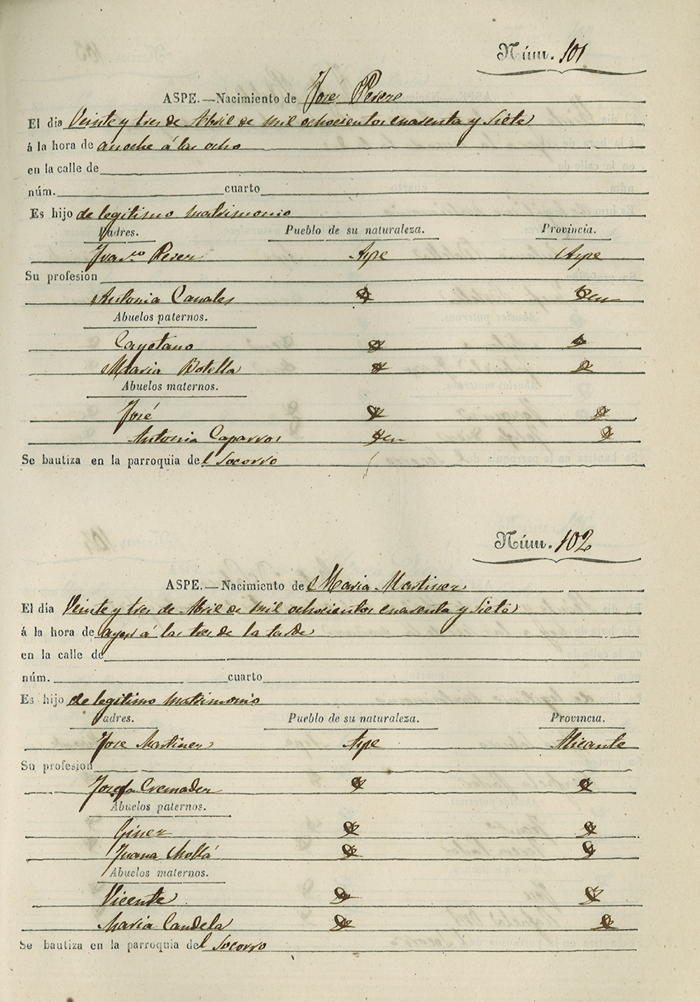 Núm. 101
ASPE.—Nacimiento de José Perez
El dia Veinte y tres de Abril de mil ochocientos cuarenta y Siete
á la hora de anoche á las ocho
en la calle de
núm. cuarto
Es hijo de legitimo matrimonio
Padres. Pueblo de su naturaleza. Provincia.
Fran.co Perez Aspe Aspe
Su profesion
Antonia Canales
Abuelos paternos.
Cayetano
Maria Botella
Abuelos maternos.
José
Antonia Caparros
Se bautiza en la parroquia del Socorro
Núm. 102
ASPE.—Nacimiento de Maria Martinez
El dia Veinte y tres de Abril de mil ochocientos cuarenta y Siete
á la hora de ayer á las tres de la tarde
en la calle de
núm. cuarto
Es hijo de legitimo matrimonio
Padres. Pueblo de su naturaleza. Provincia.
Jose Martinez Aspe Alicante
Su profesion
Josefa Cremades
Abuelos paternos.
Giner
Juana Mollá
Abuelos maternos.
Vicente
Maria Candela
Se bautiza en la parroquia del Socorro